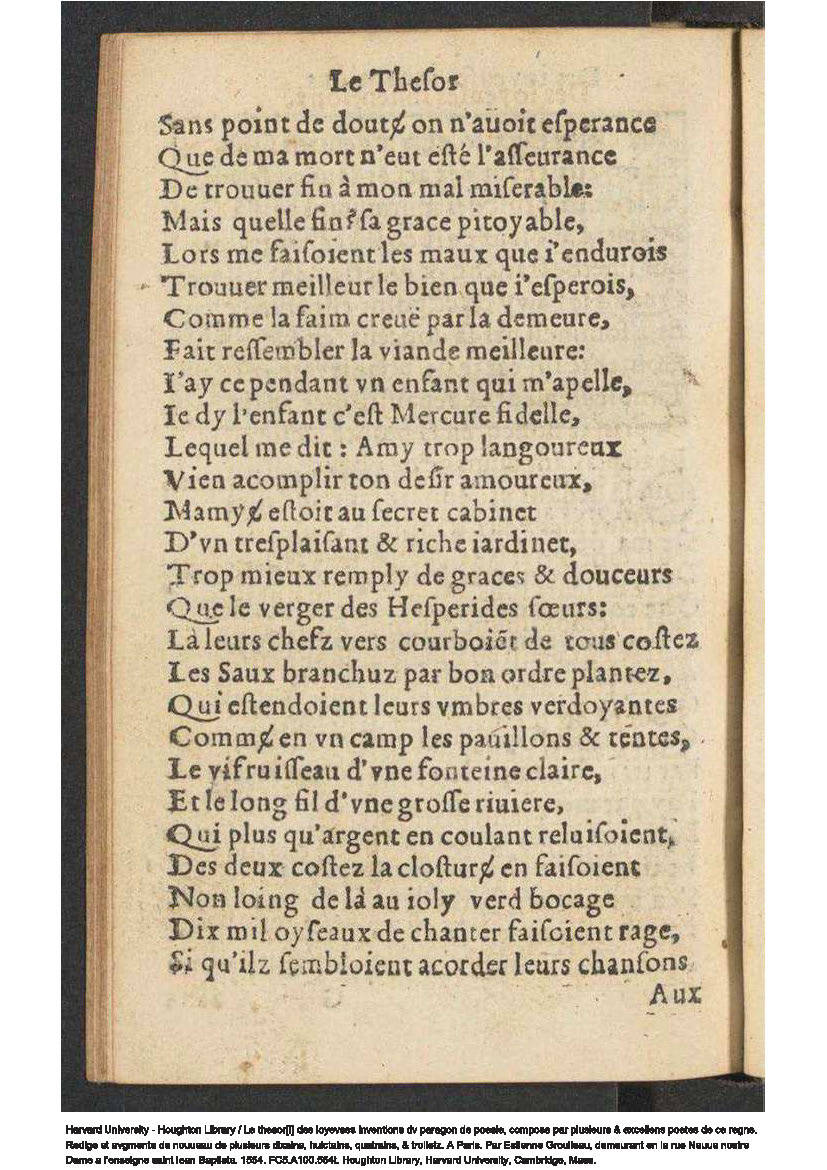 Le Theſor
Sans point de doutɇ on n'auoit eſperance
Que de ma mort n'eut eſté l'aſſeurance
De trouuer fin à mon mal miſerable:
Mais quelle fin? ſa grace pitoyable,
Lors me faiſoient les maux que i'endurois
Trouuer meilleur le bien que i'eſperois,
Comme la faim creuë par la demeure,
Fait reſſembler la viande meilleure:
I'ay cependant vn enfant qui m'apelle,
Ie dy l'enfant c'eſt Mercure fidelle,
Lequel me dit : Amy trop langoureux
Vien acomplir ton deſir amoureux,
Mamyɇ eſtoit au ſecret cabinet
D'vn treſplaiſant & riche iardinet,
Trop mieux remply de graces & douceurs
Que le verger des Heſperides ſœurs:
Là leurs chefz vers courboiẽt de tous coſtez
Les Saux branchuz par bon ordre plantez,
Qui eſtendoient leurs vmbres verdoyantes
Commɇ en vn camp les pauillons & tentes,
Le vif ruiſſeau d'vne fonteine claire,
Et le long fil d'vne groſſe riuiere,
Qui plus qu'argent en coulant reluiſoient,
Des deux coſtez la cloſturɇ en faiſoient
Non loing de là au ioly verd bocage
Dix mil oyſeaux de chanter faiſoient rage,
Si qu'ilz ſembloient acorder leurs chanſons
Aux
Harvard University - Houghton Library / Le thesor[i] des ioyevses inventions dv paragon de poesie, compose par plusieurs & excellens poetes de ce regne.
Redige et avgmente de nouueau de plusieurs dixains, huictains, quatrains, & trolletz. A Paris. Par Estienne Groulleau, demeurant en la rue Neuue nostre
Dame a l'enseigne saint Iean Baptiste. 1554. FC5.A100.554t. Houghton Library, Harvard University, Cambridge, Mass.